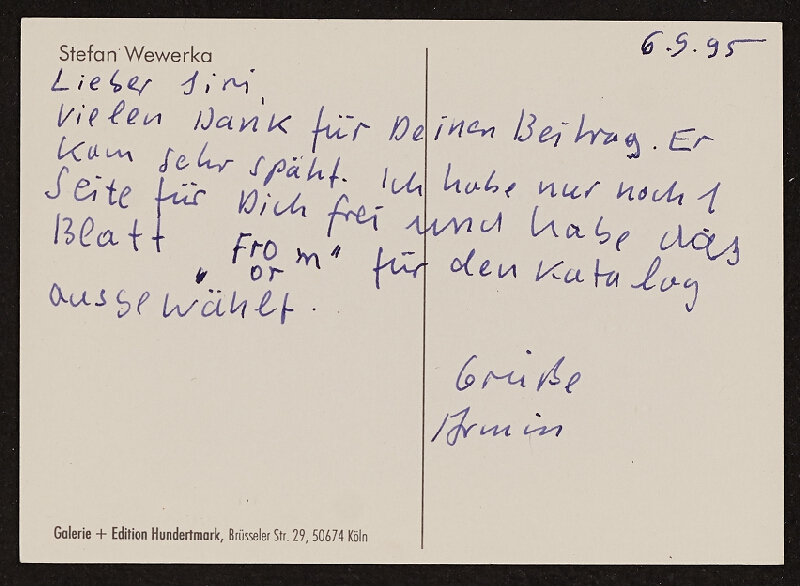 Stefan Wewerka
6.9.95
Lieber Siri,
vielen Dank für Deinen Beitrag. Er
kam sehr späht. Ich habe nur noch 1
Seite für Dich frei und habe das
Blatt „Fro m“ für den Katalog
or
ausgewählt.
Grüße
Armin
Galerie + Edition Hundertmark, Brüsseler Str. 29, 50674 Köln